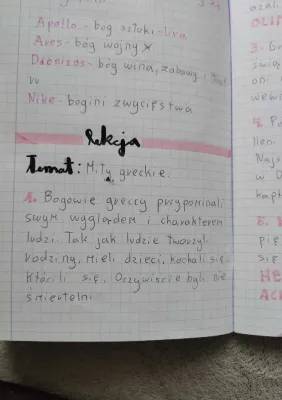 Apollo - bóg sztuki - lira
Ares - bóg wojny x
Dionizos - bóg wina, zabawy i
Nike - bogini zwycięstwa
Lekcja
Temat: Mity greckie.
1. Bogowie greccy przypominali
swym wyglądem i charakterem
ludzi. Tak jak ludzie tworzyli
rodziny, mieli dzieci, kochali się
kłócili się. Oczywiście byli nie
śmiertelni
OLIM
3. G
świą
oni
wewn
4. P
len.
Najs
w O
kapł
5.
pię
się
HE